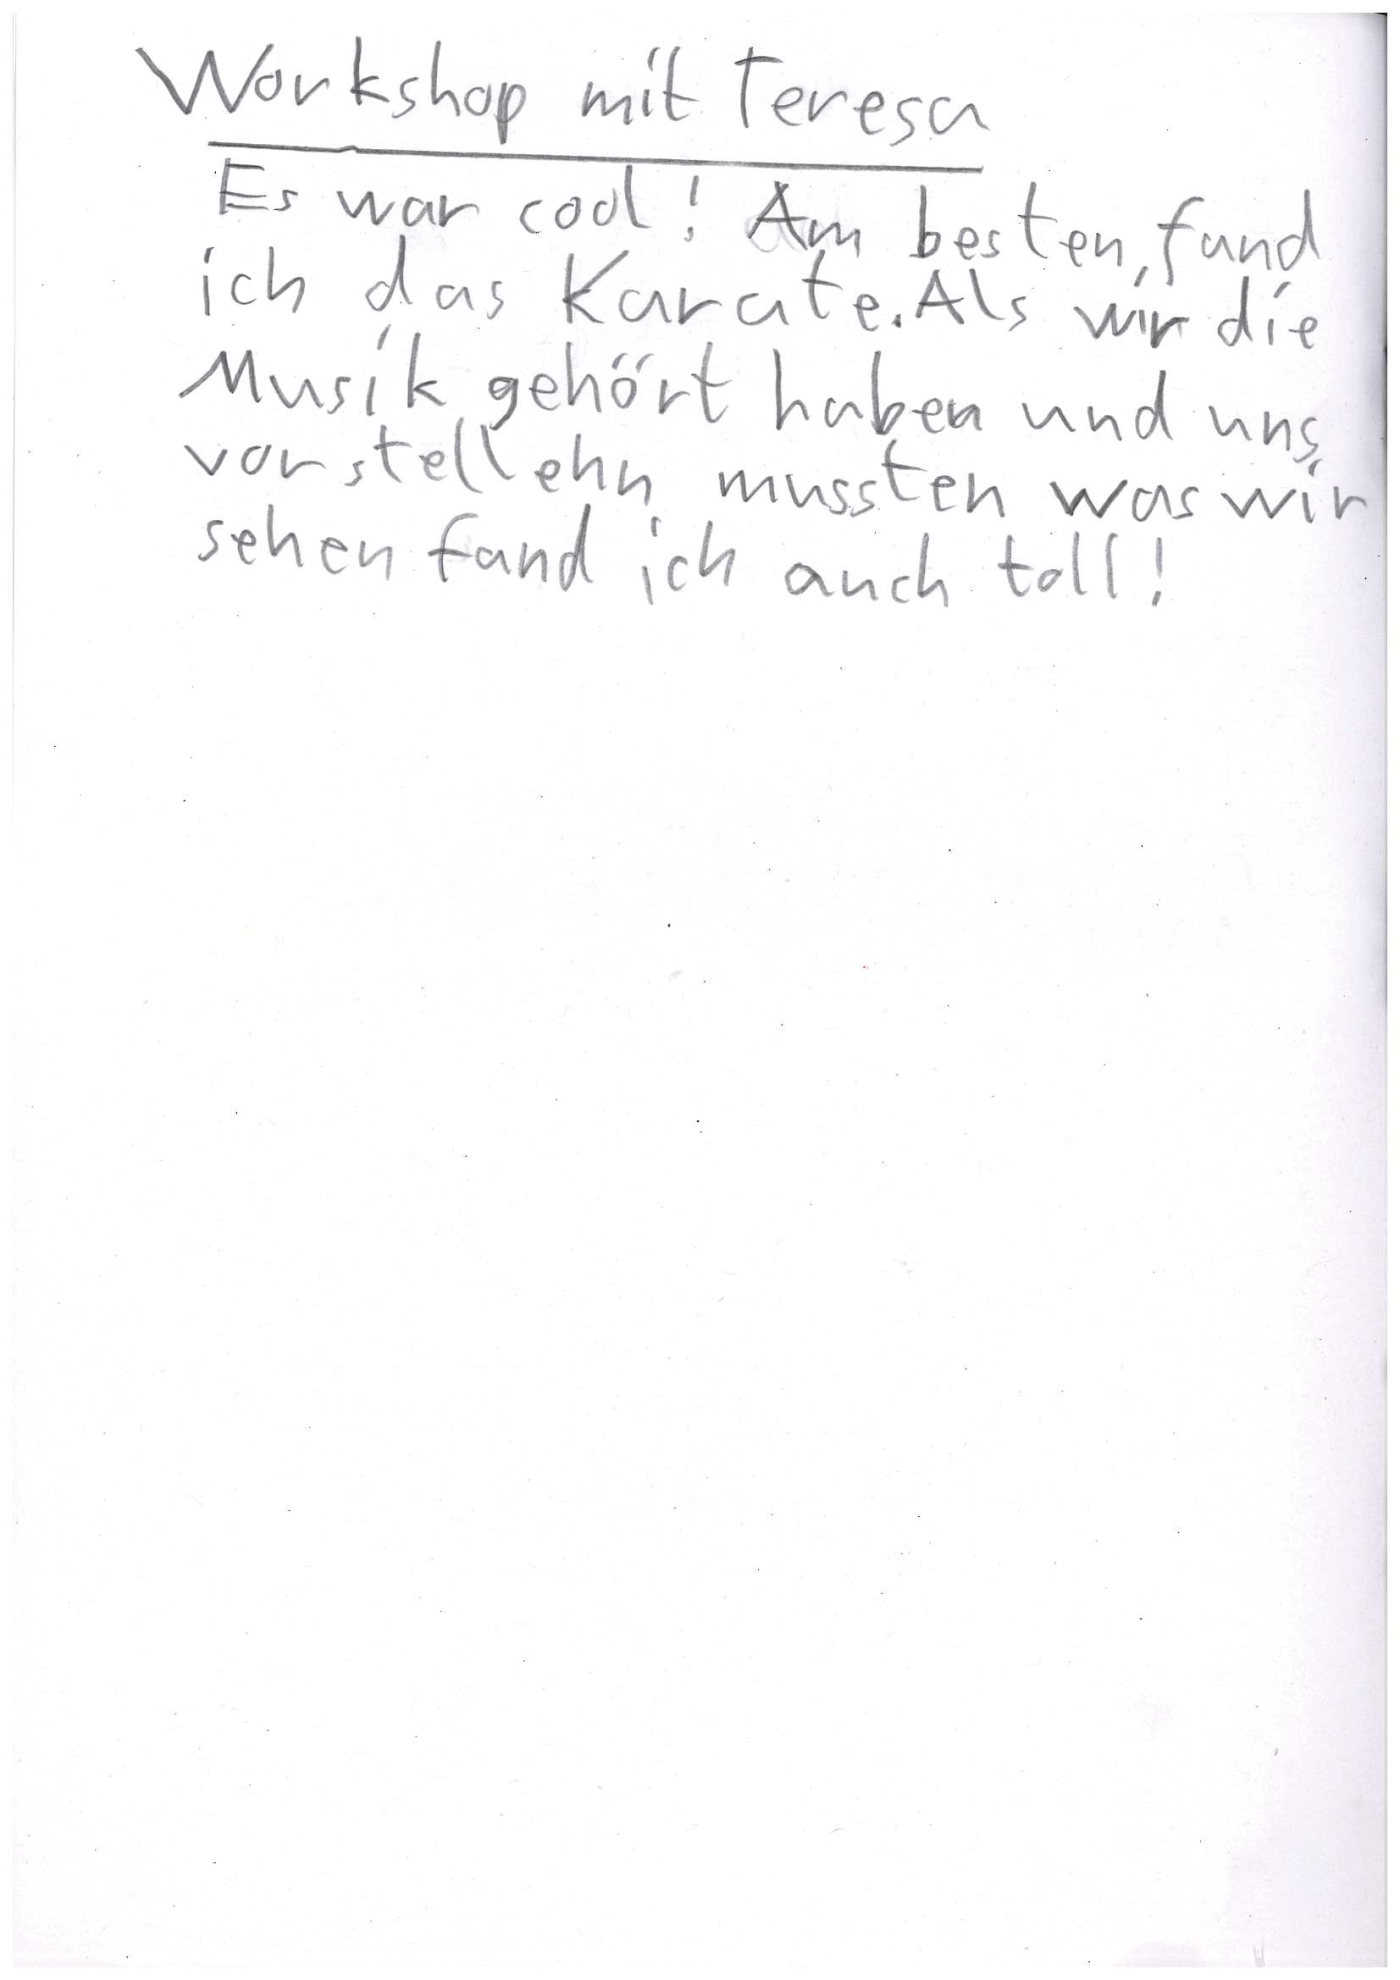 Workshop mit Teresa
Es war cool! Am besten, fand
ich das Karate. Als wir die
Musik gehört haben und uns
vorstellehn mussten was wir
sehen fand ich auch toll!